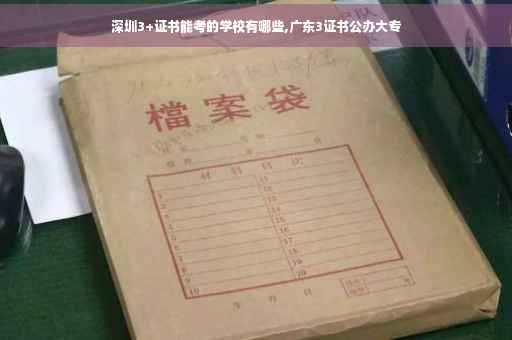 深圳3+证书能考的学校有哪些,广东3证书公办大专
檔案袋
材料目次
1 11
2 12
3 13
4 14
5 15
6 16
7 17
8 18
9 19
10 20
年 月 日